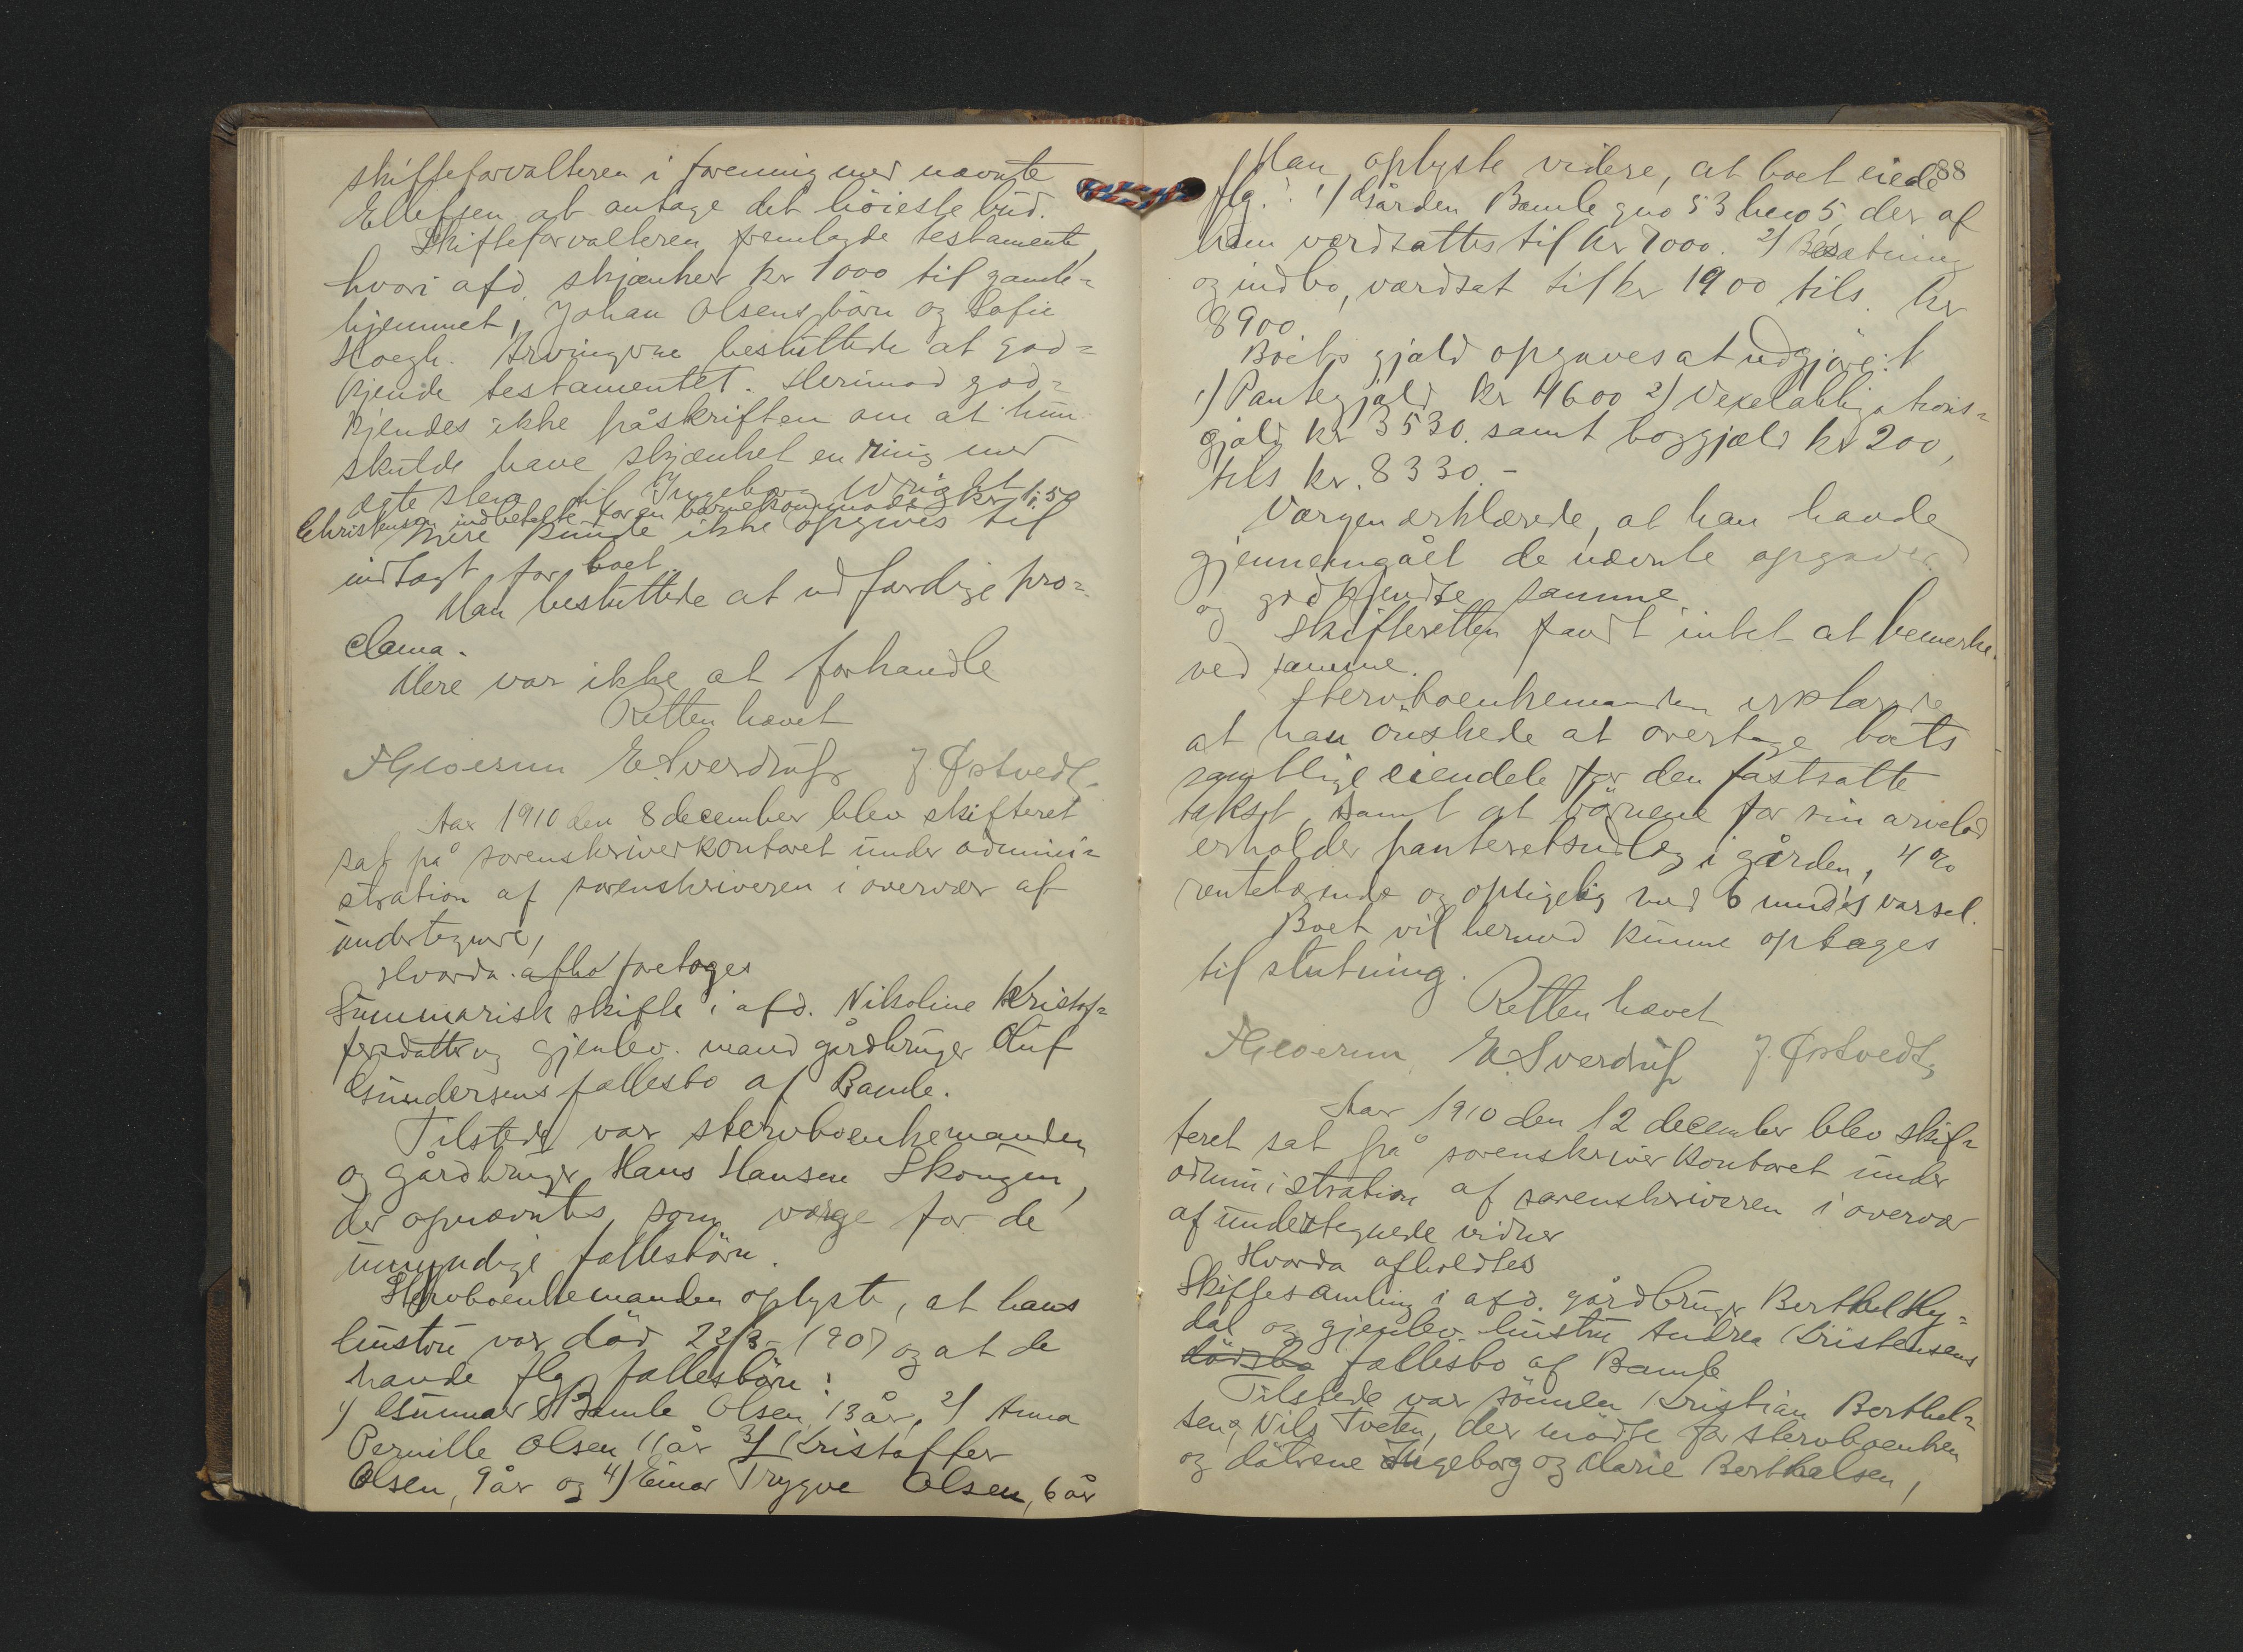 skifteforvalteren i forening med nævnte
Ellefsen at antage det høieste bud.
Skifteforvalteren fremlagde testamente,
hvori afd. skjænker kr 1000 til gamle=
hjemmet, Johan Olsens børn og Sofie
Hoegh. Arvingerne besluttede at god=
kjende testamentet. Herimod god=
kjendes ikke påskriften om at hun
skulde have skjænket en ring med
ægte sten til Ingeborg Wright
Christensen indbetalte for en barnekommode kr 1.50
Mere kunde ikke opgives til
indtægt for boet.
Man besluttede at udfærdige pro=
clama.
Mere var ikke at forhandle
Retten hævet
E. Sverdrup J. Østvedt
Aar 1910 den 8 december blev skifteret
sat på sorenskriverkontoret under admini=
stration af sorenskriveren i overvær af
undertegnede,
Hvorda. afho foretoges
Summarisk skifte i afd. Nikoline Kristof=
fersdatter og gjenlev. mand gårdbruger Oluf
Gundersens fællesbo af Bamle.
Tilstede var stervboenkemanden
og gårdbruger Hans Hansen Skougen,
der opnævntes som værge for de
umyndige fællesbørn.
Stervboenkemanden oplyste, at hans
hustru var død 22/3 - 1907 og at de
havde flg fællesbørn:
1) Gunnar Bamle Olsen 13 år, 2) Anna
Pernille Olsen 11 år 3) Kristoffer
Olsen, 9 år og 4) Einar Trygve Olsen, 6 år
88
Han oplyste videre, at boet eiede
flg.: 1) Gården Bamle gno 53 bno 5, der af
ham værdsattes til kr 7000. 2) Besætning
og indbo, værdsat til kr 1900 tils. kr
8900.
Boets gjæld opgaves at udgjøre:
1) Pantegjæld kr 4600 2) Vexelobligations=
gjæld kr 3530. samt boggjæld kr 200,
tils kr. 8330.-
Værgen erklærede, at han havde
gjennemgået de nævnte opgaver
og godkjendte samme
Skifteretten fandt intet at bemerke
ved samme.
Stervboenkemanden erklærede
at han ønskede at overtage boets
samtlige eiendele for den fastsatte
takst, samt at børnene for sin arvelod
erholder panteretsudlæg i gården, 4 %
rentebærende og opsigelig med 6 mnd's varsel.
Boet vil hermed kunne optages
til slutning.
Retten hævet
E. Sverdrup J. Østvedt
Aar 1910 den 12 december blev skif=
teret sat på sorenskriverkontoret under
administration af sorenskriveren i overvær
af undertegnede vidner
Hvorda afholdtes
Skiftesamling i afd. gårdbruger Berthel Ry=
dal og gjenlev. hustru Andrea Kristensens
dødsbo fællesbo af Bamle
Tilstede var sønnen Kristian Berthel=
sen, Nils Tveten, der mødte for stervboenken
og døtrene Ingeborg og Marie Berthelsen,